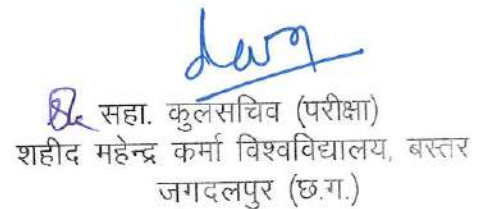 सहा. कुलसचिव (परीक्षा)
शहीद महेन्द्र कर्मा विश्वविद्यालय, बस्तर
जगदलपुर (छ.ग.)